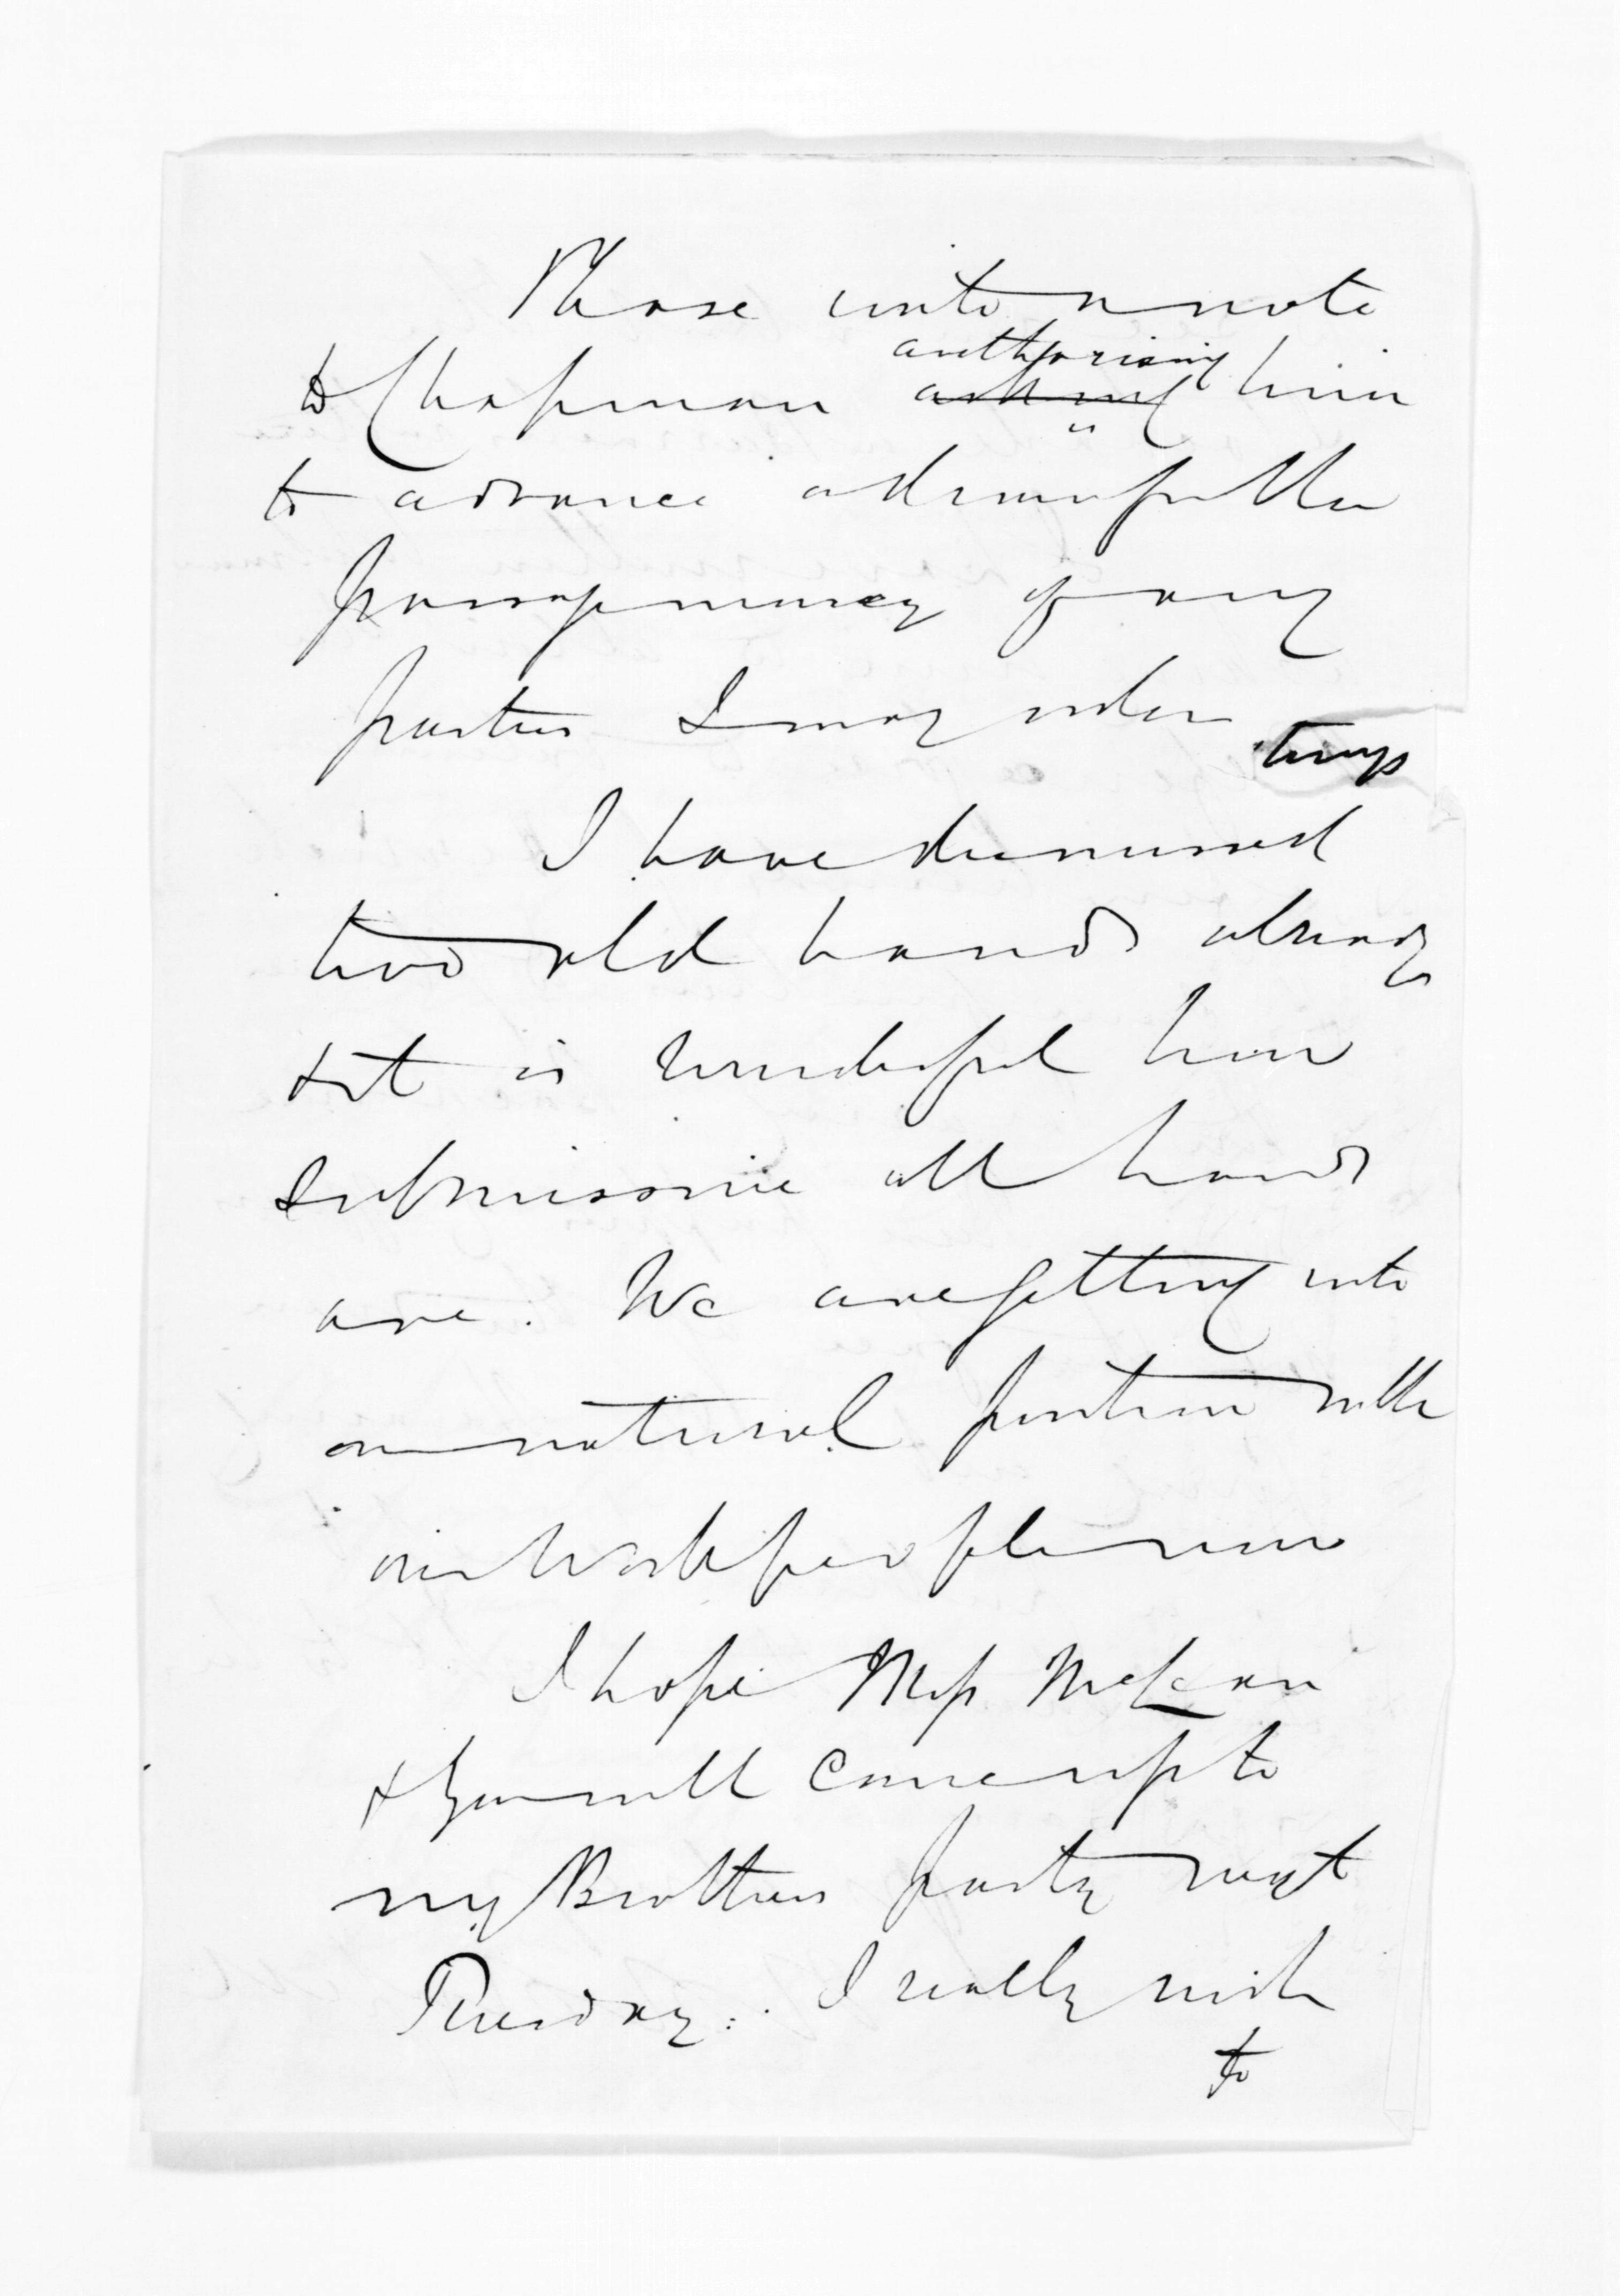 Please write a note
to Chapman authorising him
asking
to advance
passage money of any
parties I may order
I have dismissed
two old hands already
& it is wonderful how
submissive all hands
are. We are getting into
our natural position with
our Workpeople now
I hope Miss McLean
& you will come up to
my Brothers party next
Tuesday. I really wish
to